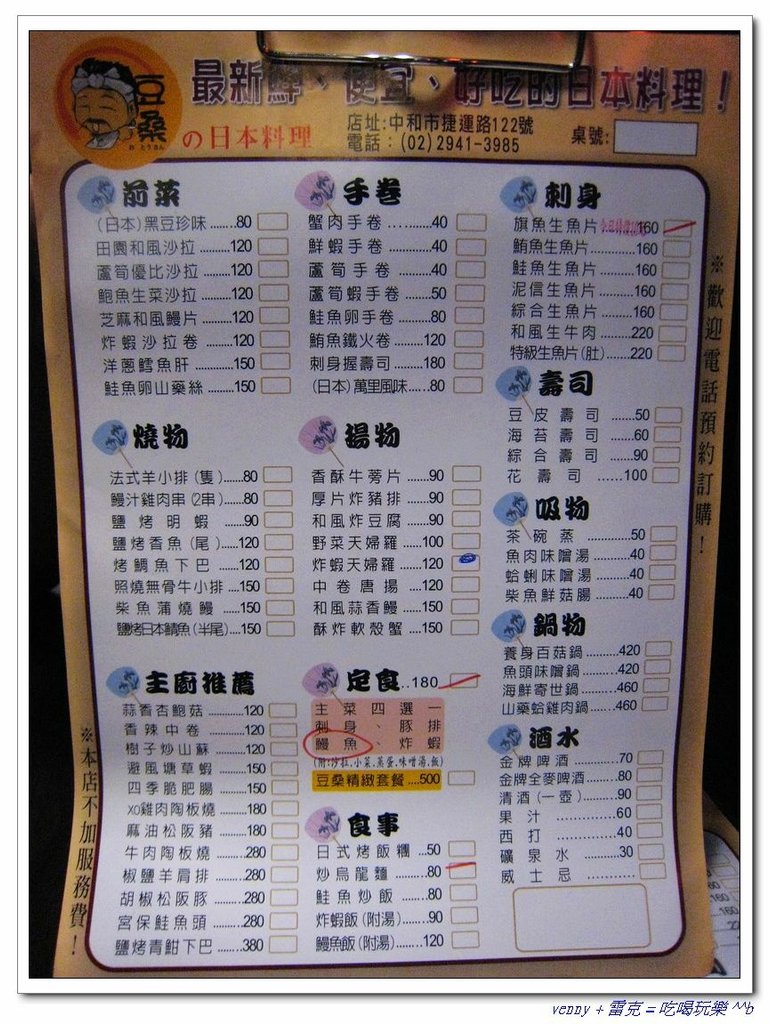 豆桑
おとうさん
の日本料理
最新鮮、便宜、好吃的日本料理！
店址:中和市捷運路122號
電話：(02) 2941-3985
桌號:
前菜
(日本)黑豆珍味.......80
田園和風沙拉........120
蘆筍優比沙拉........120
鮑魚生菜沙拉........120
芝麻和風鰻片........120
炸蝦沙拉卷........120
洋蔥鱈魚肝........150
鮭魚卵山藥絲.......150
手卷
蟹肉手卷........40
鮮蝦手卷........40
蘆筍手卷........40
蘆筍蝦手卷........50
鮭魚卵手卷........80
鮪魚鐵火卷........120
刺身握壽司........180
(日本)萬里風味.....80
刺身
旗魚生魚片 160
鮪魚生魚片........160
鮭魚生魚片........160
泥信生魚片........160
綜合生魚片........160
和風生牛肉........220
特級生魚片(肚).......220
壽司
豆皮壽司.......50
海苔壽司.......60
綜合壽司.......90
花壽司......100
燒物
法式羊小排(隻).....80
鰻汁雞肉串(2串).....80
鹽烤明蝦........90
鹽烤香魚(尾).....120
烤鯛魚下巴........120
照燒無骨牛小排..150
柴魚蒲燒鰻........150
鹽烤日本鯖魚(半尾)....150
揚物
香酥牛蒡片........90
厚片炸豬排........90
和風炸豆腐........90
野菜天婦羅........100
炸蝦天婦羅........120
中卷唐揚........120
和風蒜香鰻........150
酥炸軟殼蟹.....150
吸物
茶碗蒸..........50
魚肉味噌湯........40
蛤蜊味噌湯........40
柴魚鮮菇腸........40
鍋物
養身百菇鍋........420
魚頭味噌鍋........420
海鮮寄世鍋........460
山藥蛤雞肉鍋......460
主廚推薦
蒜香杏鮑菇........120
香辣中卷........120
樹子炒山蘇........120
避風塘草蝦........150
四季脆肥腸........150
XO雞肉陶板燒......180
麻油松阪豬........180
牛肉陶板燒........280
椒鹽羊肩排........280
胡椒松阪豚........280
宮保鮭魚頭........280
鹽烤青魽下巴......380
定食..180
主菜四選一
刺身、豚排
鰻魚、炸蝦
(附:沙拉,小菜,蒸蛋,味噌湯,飯)
豆桑精緻套餐....500
食事
日式烤飯糰...50
炒烏龍麵........80
鮭魚炒飯........80
炸蝦飯(附湯)......90
鰻魚飯(附湯).......120
酒水
金牌啤酒........70
金牌全麥啤酒.......80
清酒(一壺)........90
果汁........60
西打........40
礦泉水........30
威士忌
※歡迎電話預約訂購！
※本店不加服務費！
venny + 雷克 = 吃喝玩樂 ^^b